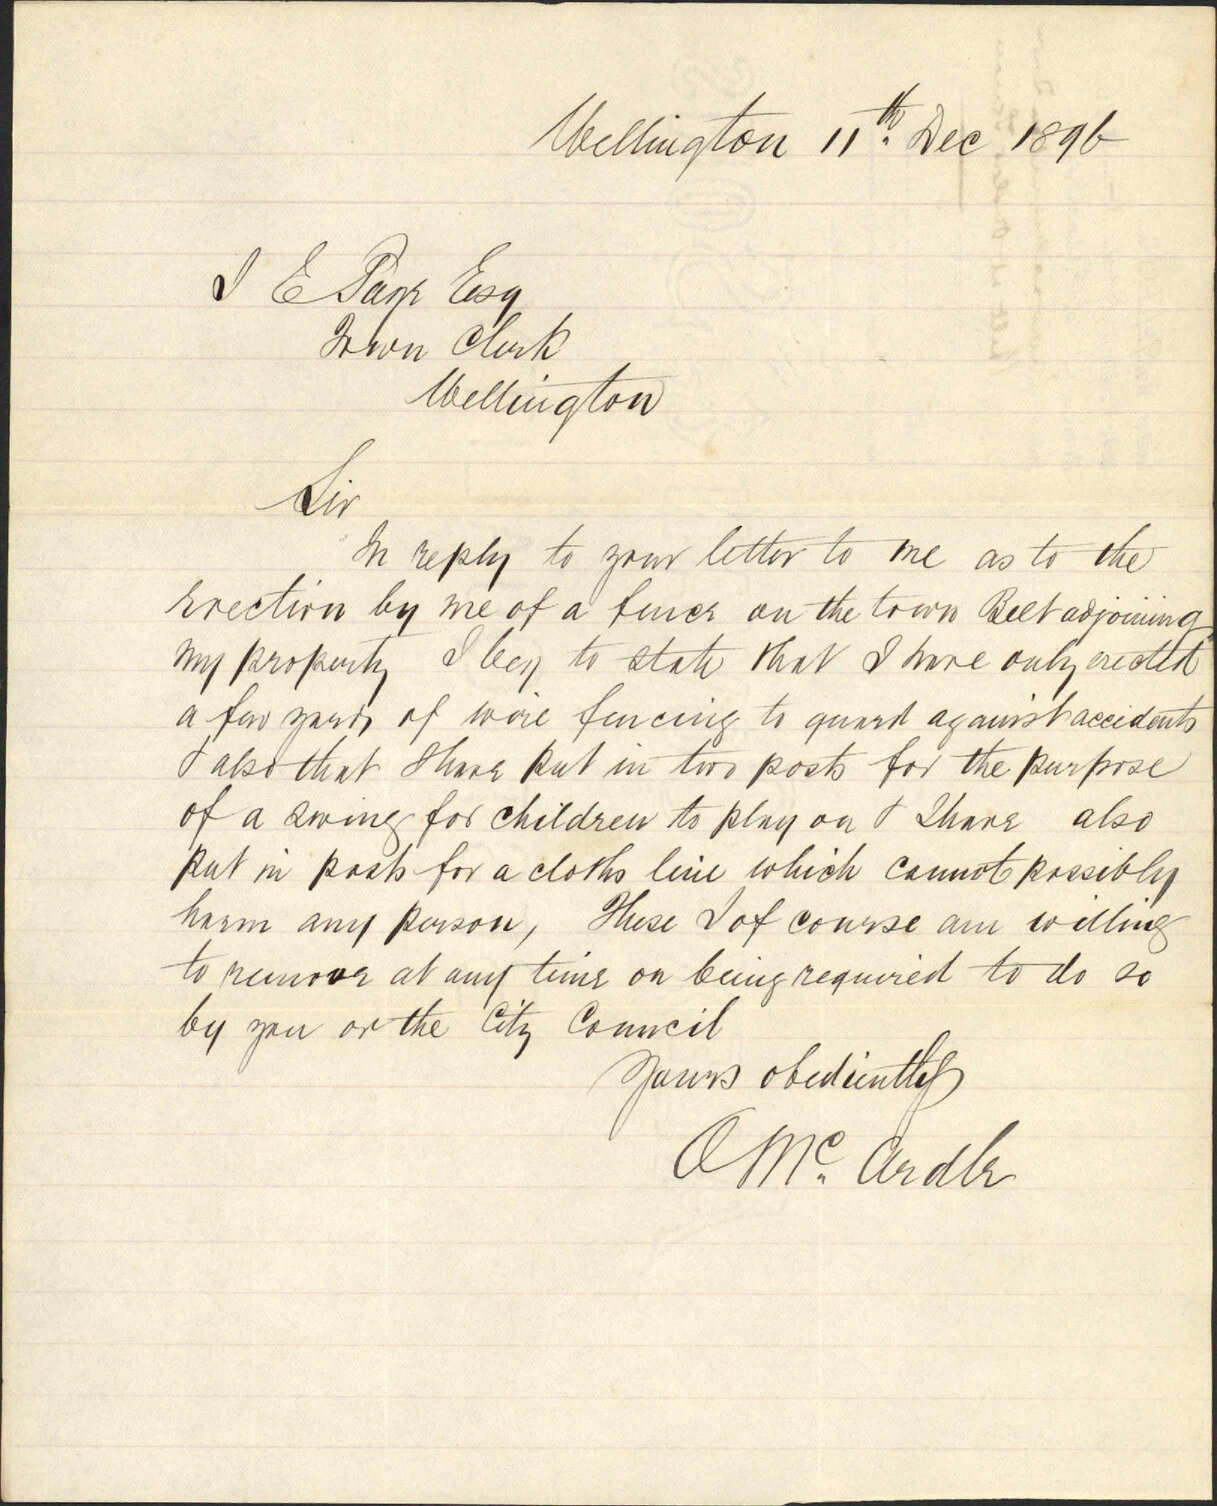 Wellington 11th. Dec 1896
J E Page Esq
Town Clerk
Wellington
Sir
In reply to your letter to me as to the
erection by me of a fence on the town Belt adjoining
my property I beg to state that I have only erected
a few yards of wire fencing to guard against accidents
& also that I have put in two posts for the purpose
of a swing for children to play on & I have also
put in posts for a cloths line which cannot possibly
harm any person, These I of course am willing
to remove at any time on being required to do so
by you or the City Council
Yours obediently
O Mc. Ardle